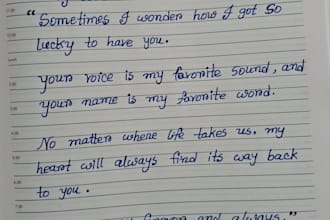 “Sometimes I wonder how I got so
lucky to have you.
your voice is my favorite sound, and
your name is my favorite word.
No matter where life takes us, my
heart will always find its way back
to you.
and always.”